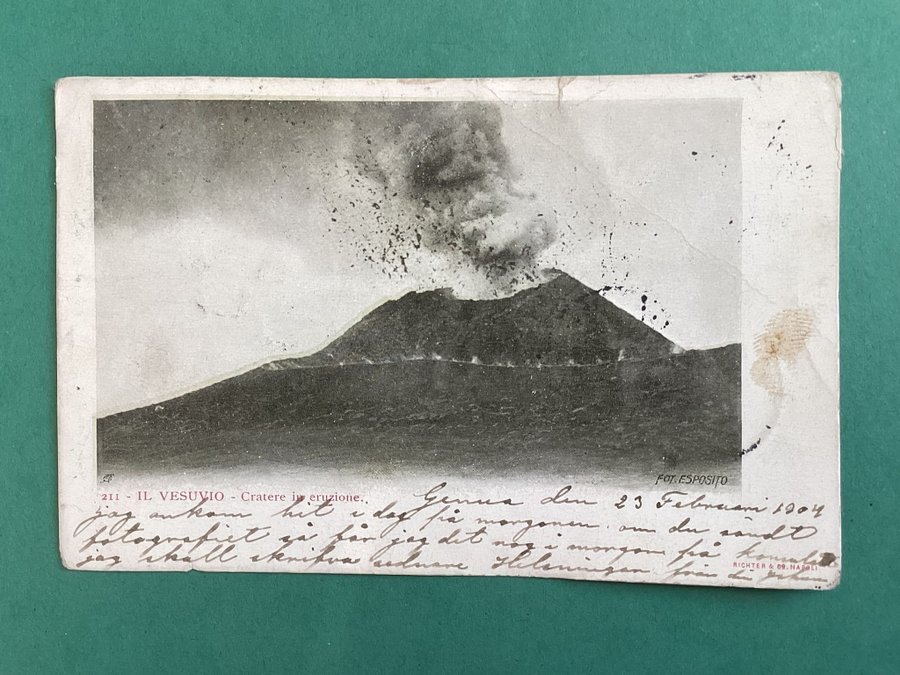 FOT. ESPOSITO
211 - IL VESUVIO - Cratere in eruzione.
Genua den 23 Februari 1904
jag ankom hit i dag på morgonen. om du sändt
fotografiet så får jag det nog i morgon på konsulatet
jag skall skrifva sednare Helsningar från din
RICHTER & Co. NAPOLI